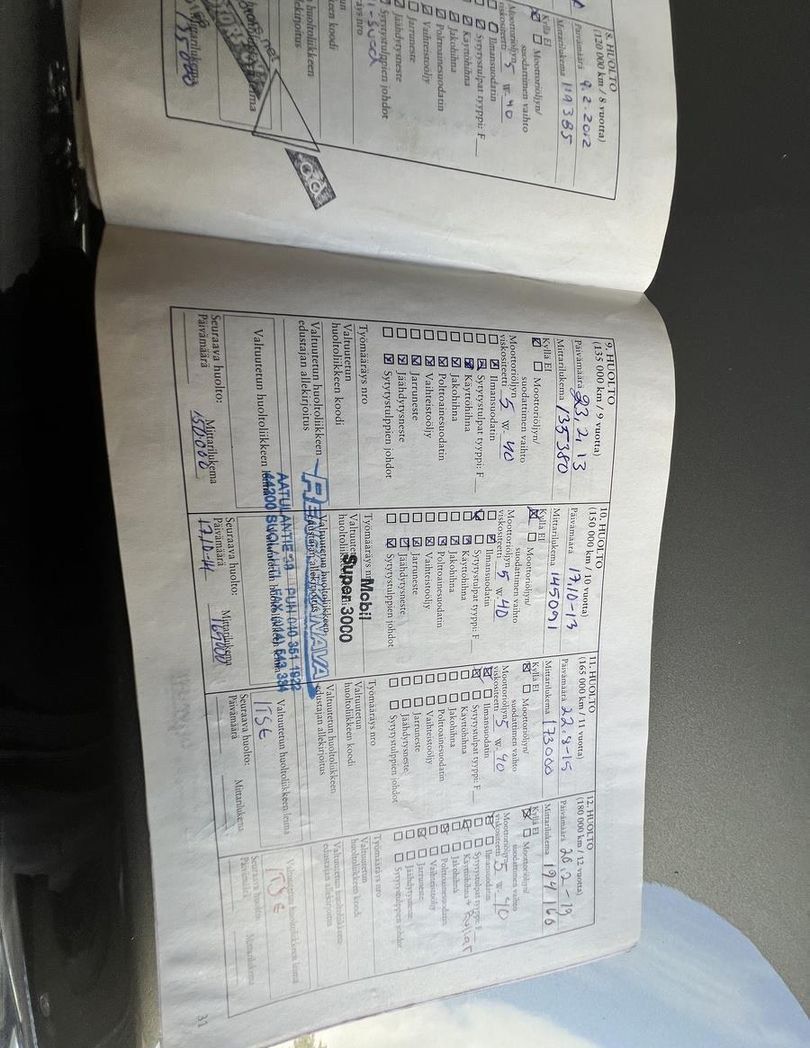 8. HUOLTO
(120 000 km / 8 vuotta)
Päivämäärä 9.2.2012
Mittarilukema 119385
Kyllä Ei
Moottoriöljyn/
suodattimen vaihto
Moottoriöljyn
viskositeetti 5 W- 40
Ilmansuodatin
Sytytystulpat tyyppi: F
Käyttöhihna
Jakohihna
Polttoainesuodatin
Vaihteistoöljy
Jarruneste
Jäähdytysneste
Sytytystulppien johdot
9. HUOLTO
(135 000 km / 9 vuotta)
Päivämäärä 23.2.13
Mittarilukema 135380
Kyllä Ei
Moottoriöljyn/
suodattimen vaihto
Moottoriöljyn
viskositeetti 5 W- 40
Ilmansuodatin
Sytytystulpat tyyppi: F
Käyttöhihna
Jakohihna
Polttoainesuodatin
Vaihteistoöljy
Jarruneste
Jäähdytysneste
Sytytystulppien johdot
Työmääräys nro
Valtuutetun
huoltoliikkeen koodi
Valtuutetun huoltoliikkeen
edustajan allekirjoitus
Valtuutetun huoltoliikkeen leima
Seuraava huolto:
Päivämäärä
Mittarilukema
150000
10. HUOLTO
(150 000 km / 10 vuotta)
Päivämäärä 17.10-13
Mittarilukema 145091
Kyllä Ei
Moottoriöljyn/
suodattimen vaihto
Moottoriöljyn
viskositeetti 5 W- 40
Ilmansuodatin
Sytytystulpat tyyppi: F
Käyttöhihna
Jakohihna
Polttoainesuodatin
Vaihteistoöljy
Jarruneste
Jäähdytysneste
Sytytystulppien johdot
Työmääräys
Mobil
Super 3000
Valtuutetun huoltoliikkeen
edustajan allekirjoitus
AATULANTIE
PUH 040 351 1922
FAX (014) 543 334
Seuraava huolto:
Päivämäärä
17.10-14
Mittarilukema
165000
11. HUOLTO
(165 000 km / 11 vuotta)
Päivämäärä 22.8-15
Mittarilukema 173000
Kyllä Ei
Moottoriöljyn/
suodattimen vaihto
Moottoriöljyn
viskositeetti 5 W- 40
Ilmansuodatin
Sytytystulpat tyyppi: F
Käyttöhihna
Jakohihna
Polttoainesuodatin
Vaihteistoöljy
Jarruneste
Jäähdytysneste
Sytytystulppien johdot
Työmääräys nro
Valtuutetun
huoltoliikkeen koodi
Valtuutetun huoltoliikkeen
edustajan allekirjoitus
Valtuutetun huoltoliikkeen leima
ITSE
Seuraava huolto:
Päivämäärä
Mittarilukema
12. HUOLTO
(180 000 km / 12 vuotta)
Päivämäärä 26.2-19
Mittarilukema 194166
Kyllä Ei
Moottoriöljyn/
suodattimen vaihto
Moottoriöljyn
viskositeetti 5 W- 40
Ilmansuodatin
Sytytystulpat tyyppi: F
Käyttöhihna + Rullat
Jakohihna
Polttoainesuodatin
Vaihteistoöljy
Jarruneste
Jäähdytysneste
Sytytystulppien johdot
Työmääräys nro
Valtuutetun
huoltoliikkeen koodi
Valtuutetun huoltoliikkeen
edustajan allekirjoitus
Valtuutetun huoltoliikkeen leima
ITSE
Seuraava huolto:
Päivämäärä
Mittarilukema
31